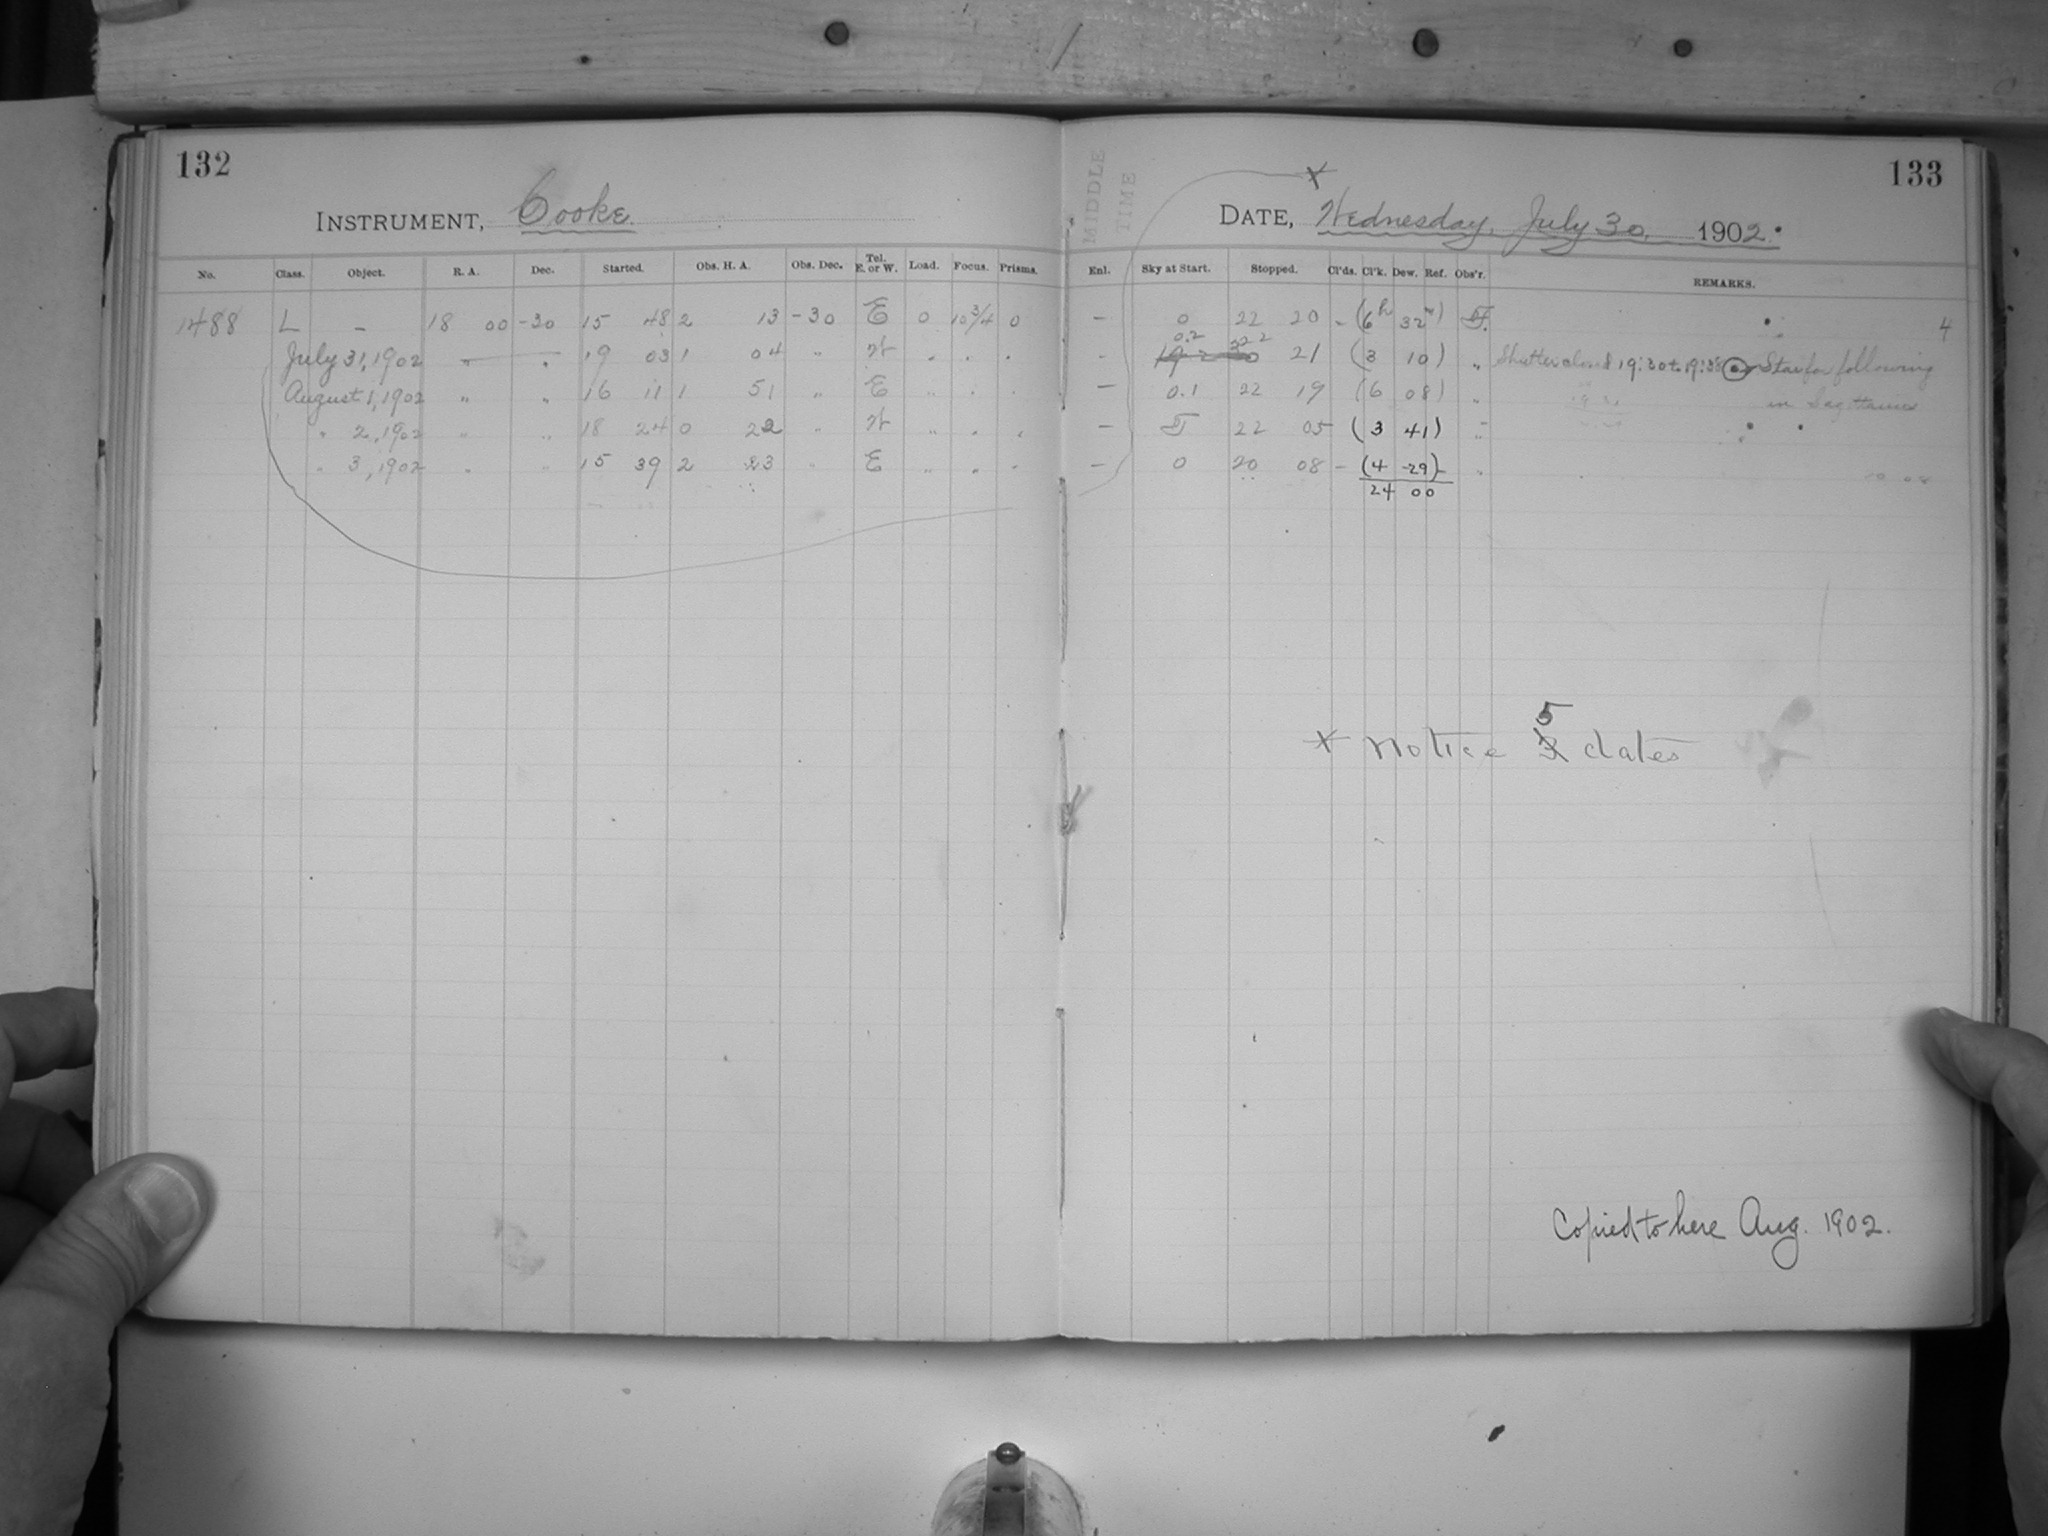 132
INSTRUMENT, Cooke.
No. Class. Object. R. A. Dec. Started. Obs. H. A. Obs. Dec. Tel. E. or W. Load. Focus. Prisms.
1488 L - 18 00 -30 15 48 2 13 -30 E 0 10 3/4 0
July 31, 1902 " " 19 03 1 04 " W " " "
August 1, 1902 " " 16 11 1 51 " E " " "
" 2, 1902 " " 18 24 0 22 " W " " "
" 3, 1902 " " 15 39 2 23 " E " " "
MIDDLE
TIME
133
DATE, Wednesday, July 30, 1902.
Enl. Sky at Start. Stopped. Cl'ds. Cl'k. Dew. Ref. Obs'r. REMARKS.
- 0 22 20 - (6h 32m) F. 4
- 0.2 22 21 (3 10) " Shutter closed 19:30 to 19:38 Star for following
- 0.1 22 19 (6 08) " in Sagittarius
- F 22 05 (3 41) "
- 0 20 08 - (4 29) "
24 00
x notice 5 dates
Copied to here Aug. 1902.